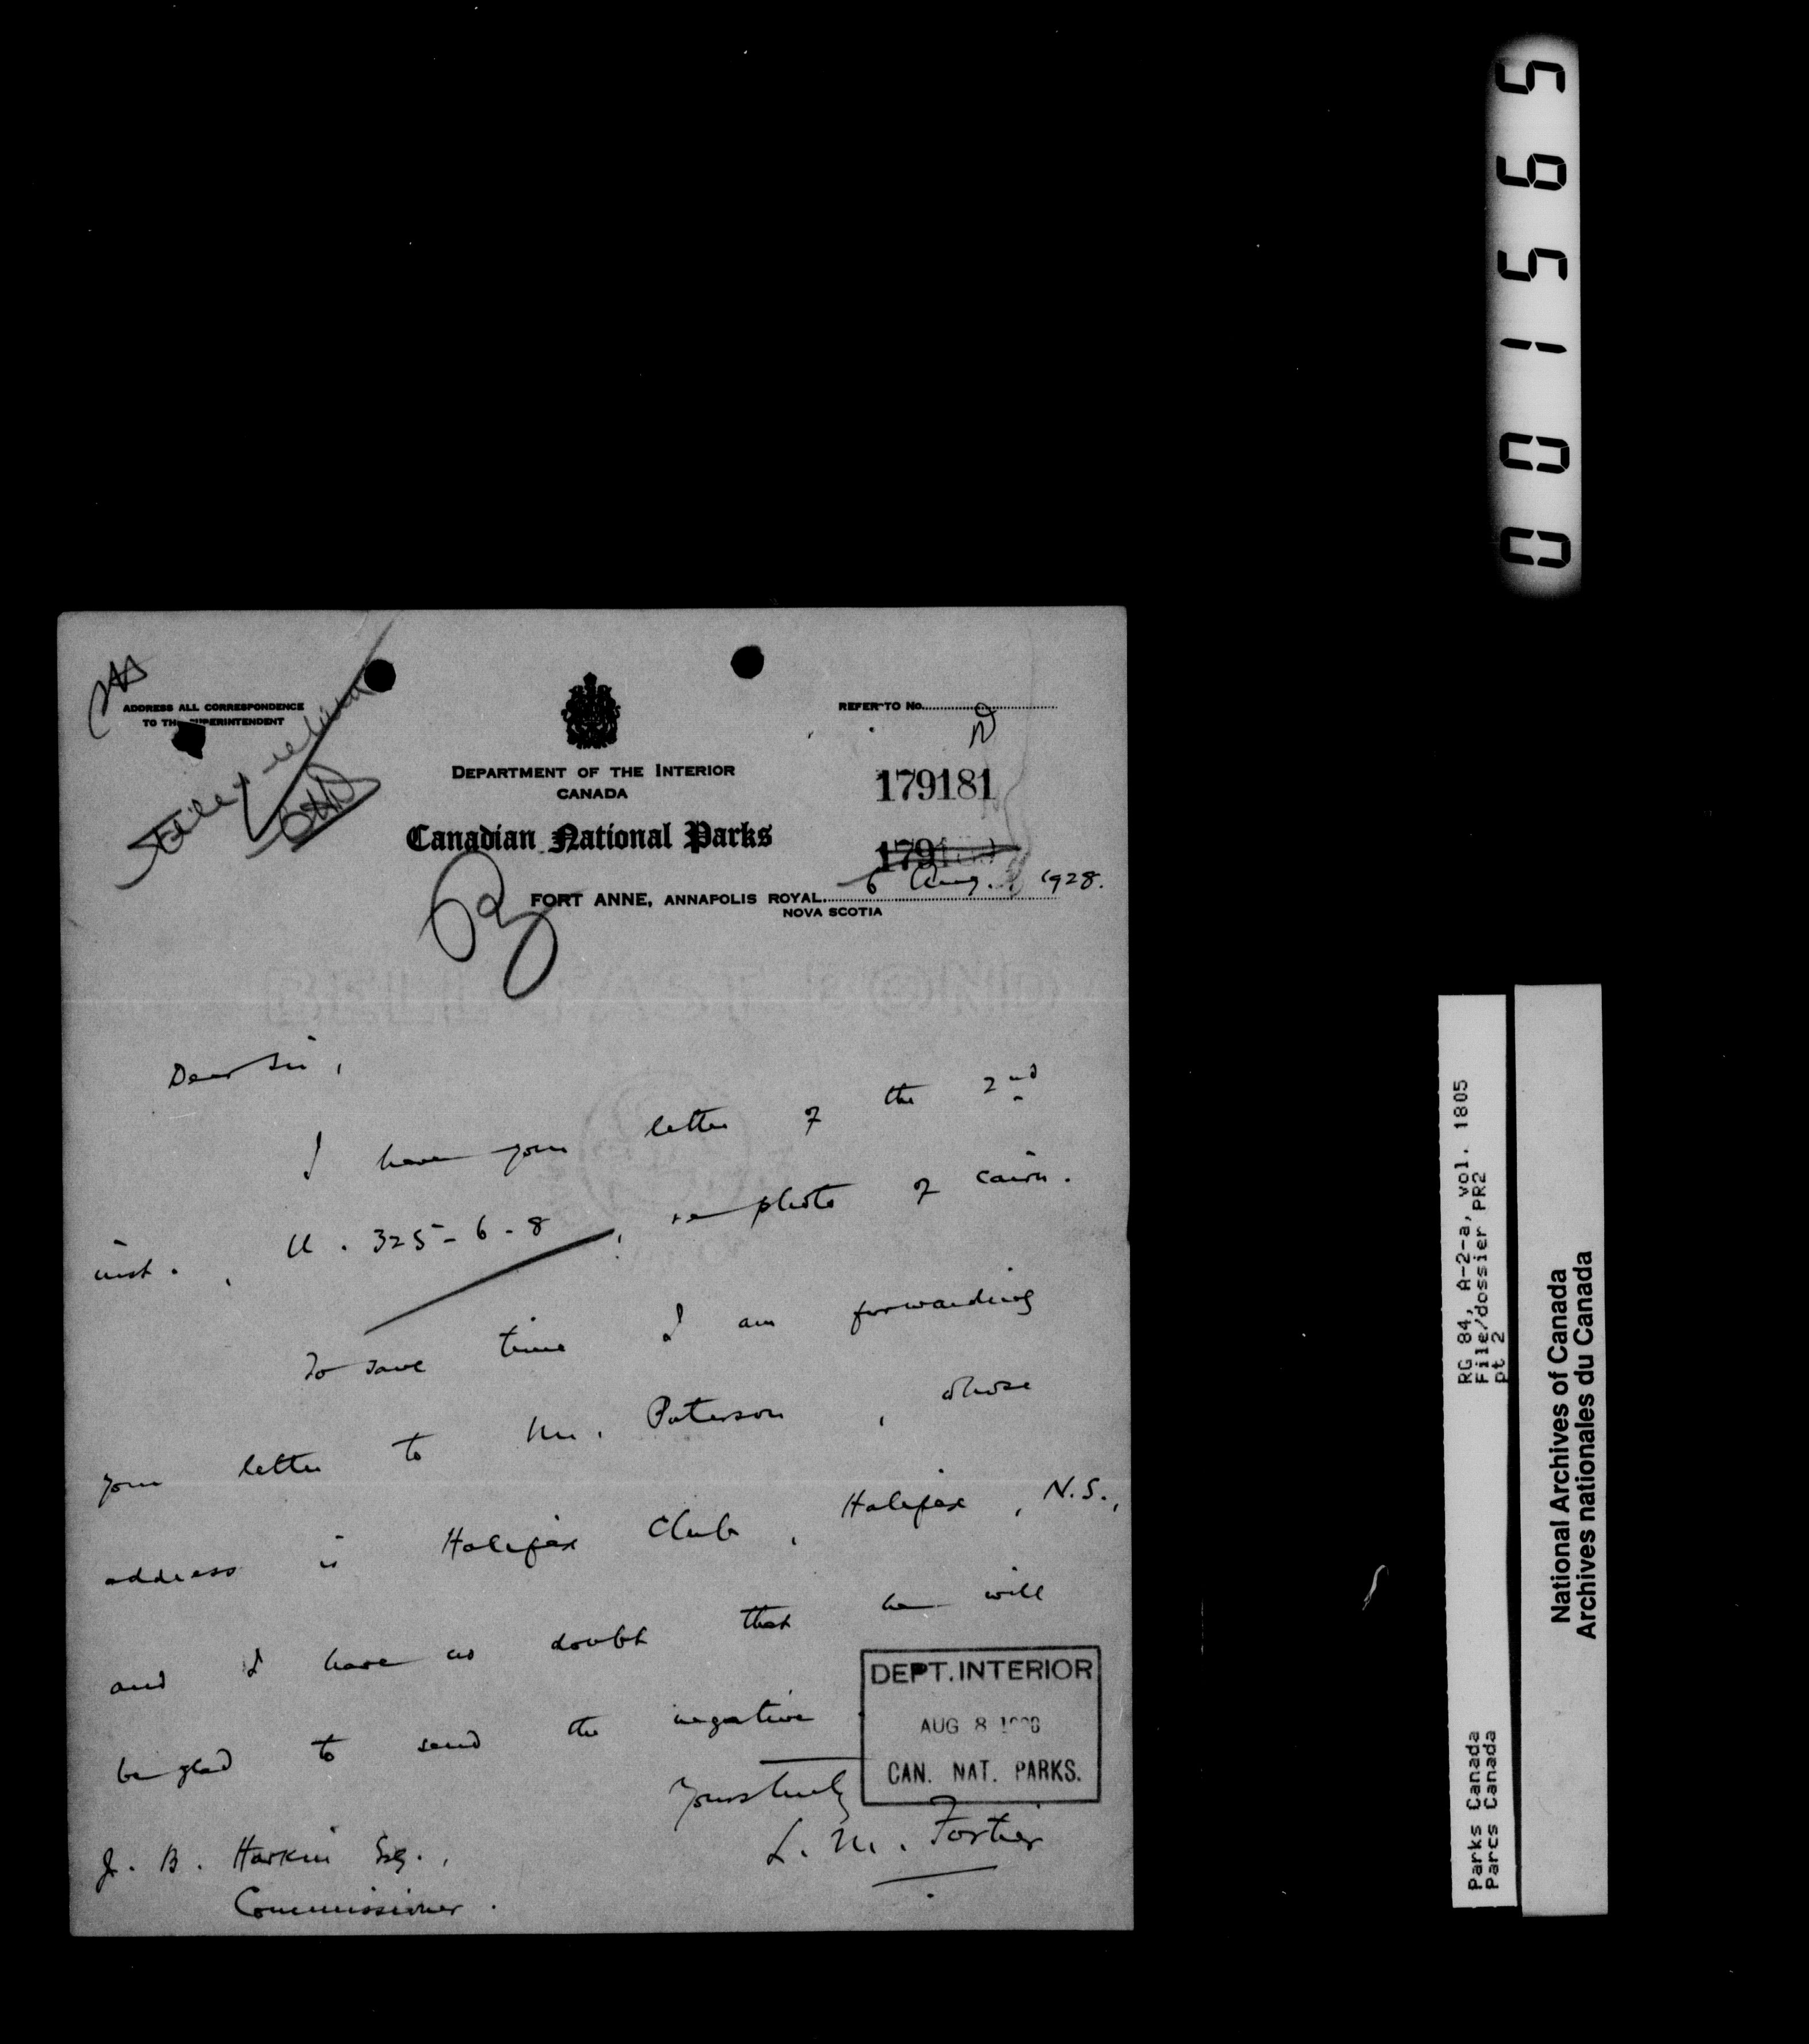 001565
ADDRESS ALL CORRESPONDENCE
TO THE SUPERINTENDENT
REFER TO No.
DEPARTMENT OF THE INTERIOR
CANADA
Canadian National Parks
179181
179
6 Aug. 1928.
FORT ANNE, ANNAPOLIS ROYAL
NOVA SCOTIA
Dear Sir,
I have your letter of the 2nd
inst., U. 325-6-8, re photo of cairn.
To save time I am forwarding
your letter to Mr. Paterson, whose
address is Halifax Club, Halifax, N.S.,
and I have no doubt that he will
be glad to send the negative.
Yours truly
L. M. Fortier
J. B. Harkin Esq.,
Commissioner.
DEPT. INTERIOR
AUG 8 1928
CAN. NAT. PARKS.
RG 84, A-2-a, vol. 1805
File/dossier PR2
pt 2
Parks Canada
Parcs Canada
National Archives of Canada
Archives nationales du Canada